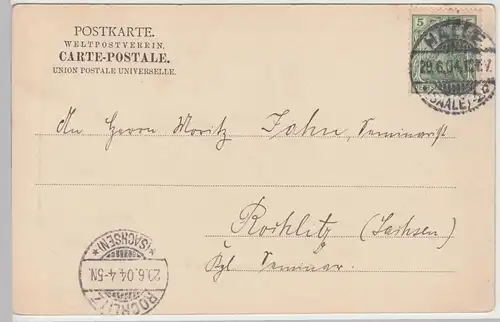 POSTKARTE.
WELTPOSTVEREIN.
CARTE-POSTALE.
UNION POSTALE UNIVERSELLE.
5 5
HALLE
29.6.04
(SAALE)
An Herrn Moritz Jahn, Seminarist
Rochlitz (Sachsen)
Kgl Seminar.
ROCHLITZ
29.6.04 4-5N.
*(SACHSEN)*